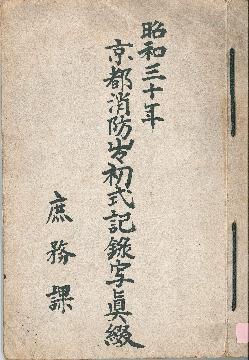 昭和三十年
京都消防出初式記録写真綴
庶務課